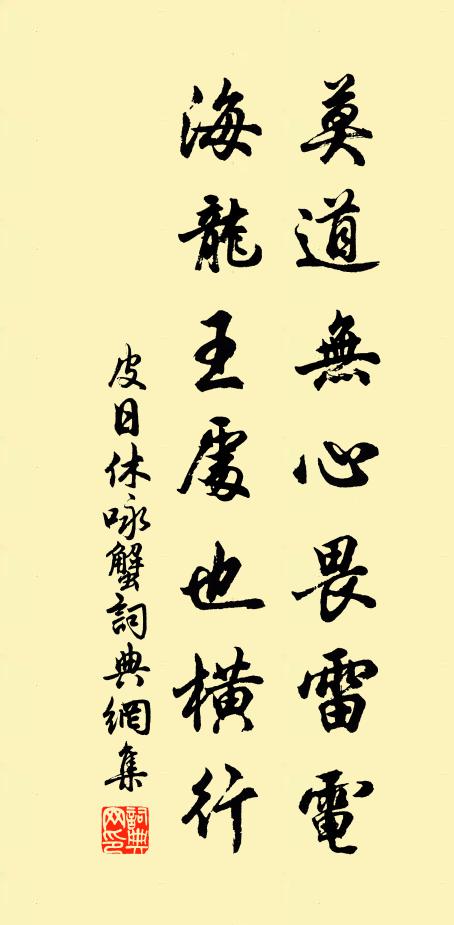 莫道無心畏雷電
海龍王處也橫行
皮日休咏蟹詞典網集
詞典網印